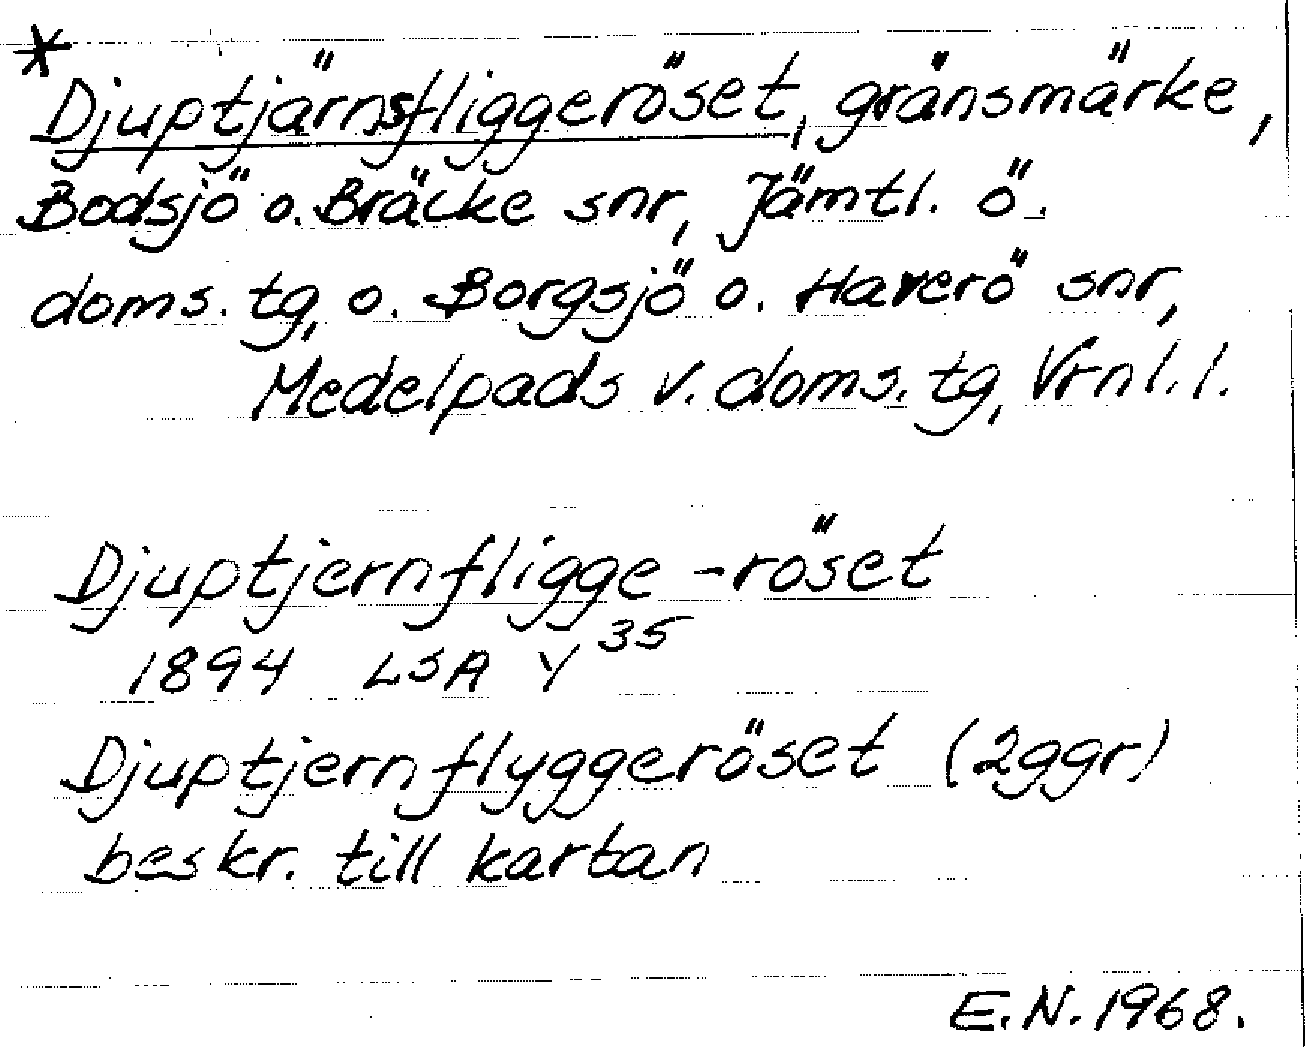 * Djuptjärnsfliggeröset, gränsmärke,
Bodsjö o. Bräcke snr, Jämtl. ö.
doms. tg, o. Borgsjö o. Haverö snr,
Medelpads v. doms. tg, Vrnl. l.
Djuptjernfligge-röset
1894 LSA Y 35
Djuptjernflyggeröset (2ggr)
beskr. till kartan
E.N. 1968.